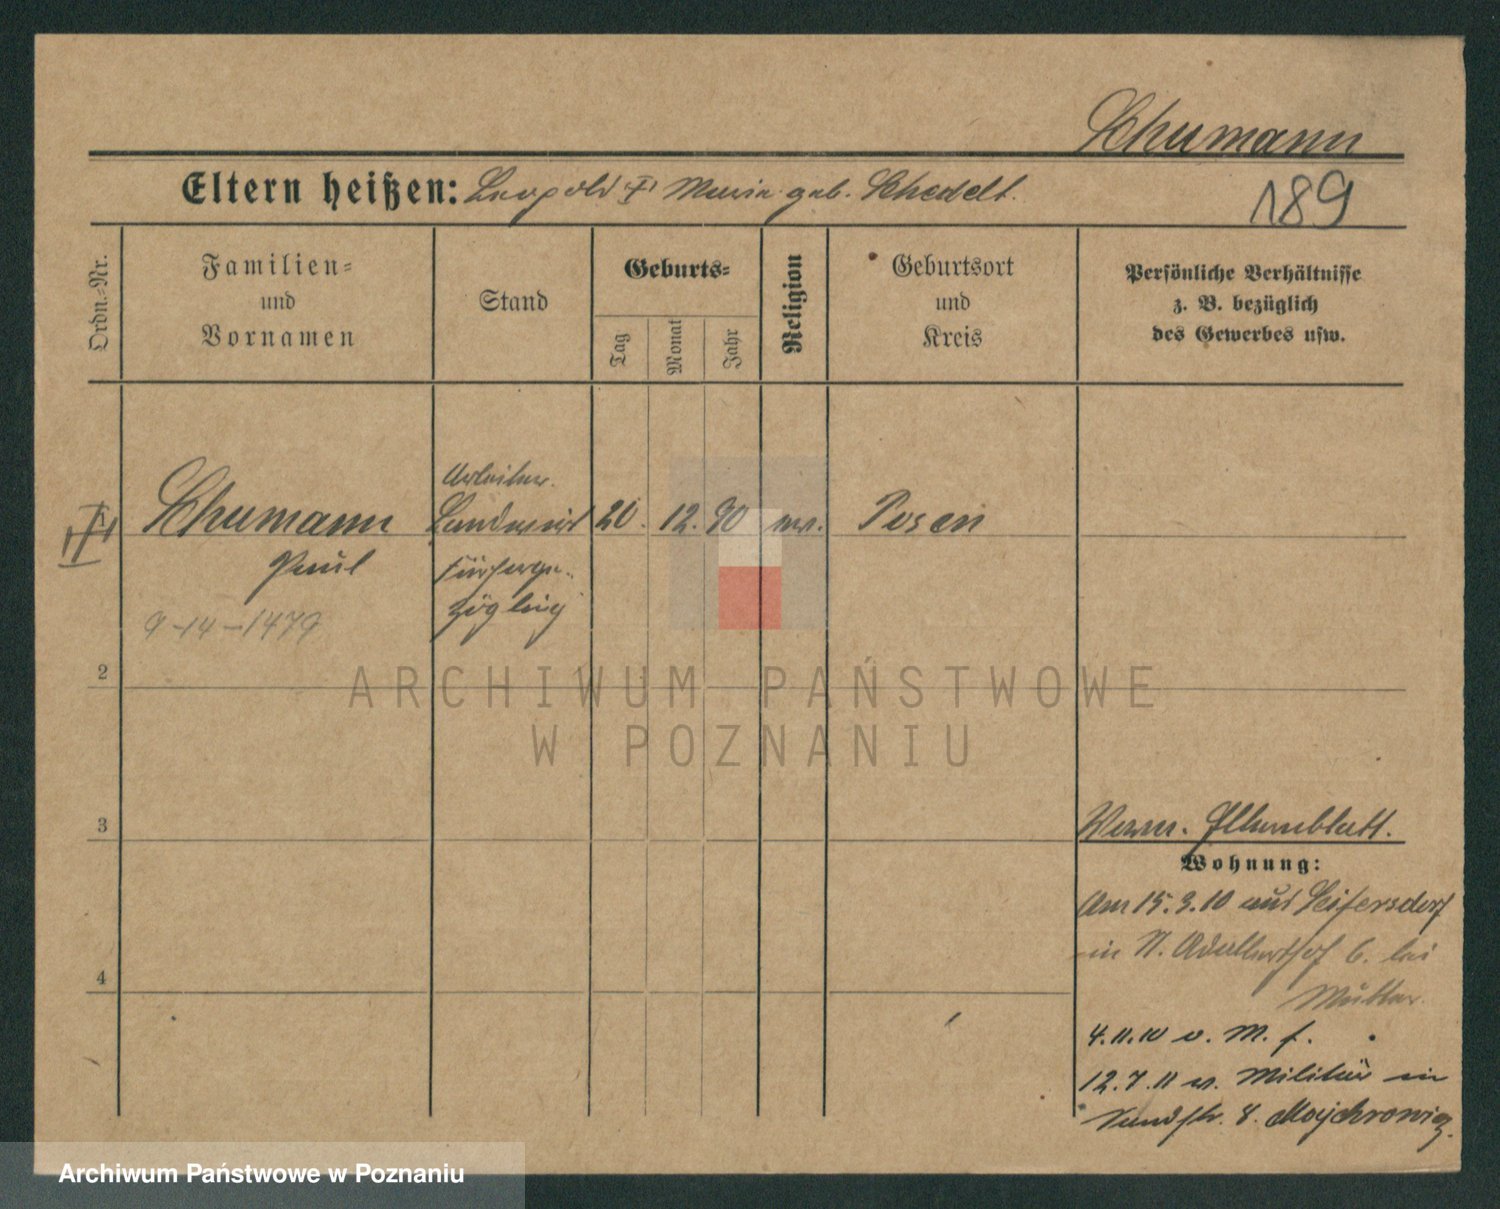 Schumann
Eltern heißen: Leopold Maria geb. Schedelt.
189
Ordn.-Nr.
Familien-
und
Vornamen
Stand
Geburts-
Tag
Monat
Jahr
Religion
Geburtsort
und
Kreis
Persönliche Verhältnisse
z. B. bezüglich
des Gewerbes usw.
Arbeiter.
Schumann Landwirt 20. 12. 90 ev. Posen
Paul Fürsorge-
zögling
9-14-1479
2
3
4
ARCHIWUM PAŃSTWOWE
W POZNANIU
Wohnung:
Am 15.3.10 aus Seifersdorf
in N. Adalberthof 6. bei
Mutter.
4.11.10 v. M. f.
12.7.11 v. Militär in
8. Moychrowicz.
Archiwum Państwowe w Poznaniu